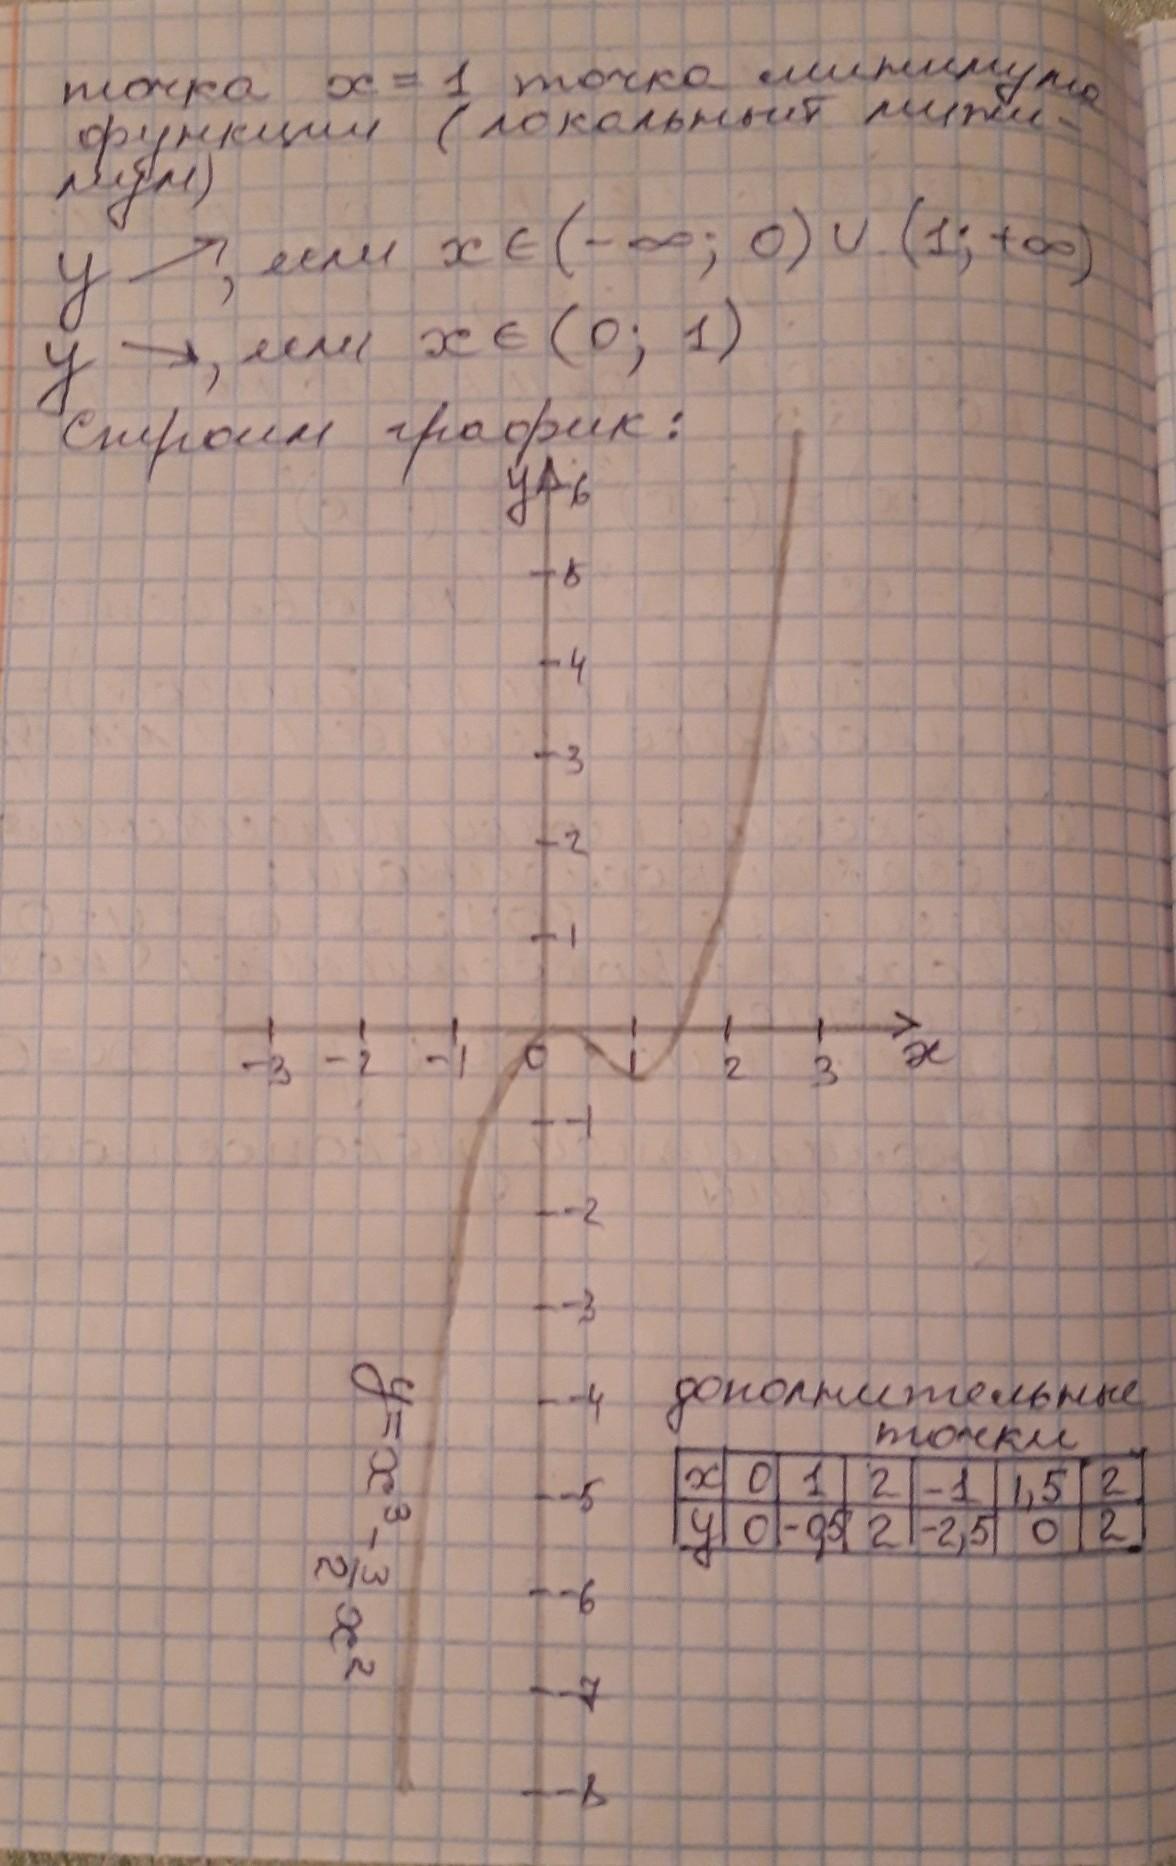 точка x = 1 точка минимума
функции (локальный мини-
мум)
y ↗, если x ∈ (-∞; 0) ∪ (1; +∞)
y ↘, если x ∈ (0; 1)
Строим график:
y 6
5
4
3
2
1
-3 -2 -1 0 1 2 3 x
-1
-2
-3
-4
-5
-6
-7
-8
y = x³ - 3/2 x²
дополнительные
точки
x 0 1 2 -1 1,5 2
y 0 -0,5 2 -2,5 0 2